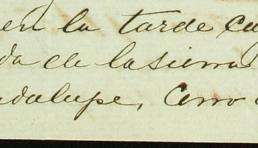 en la tarde cu
da de la sierra
adalupe, Cerro